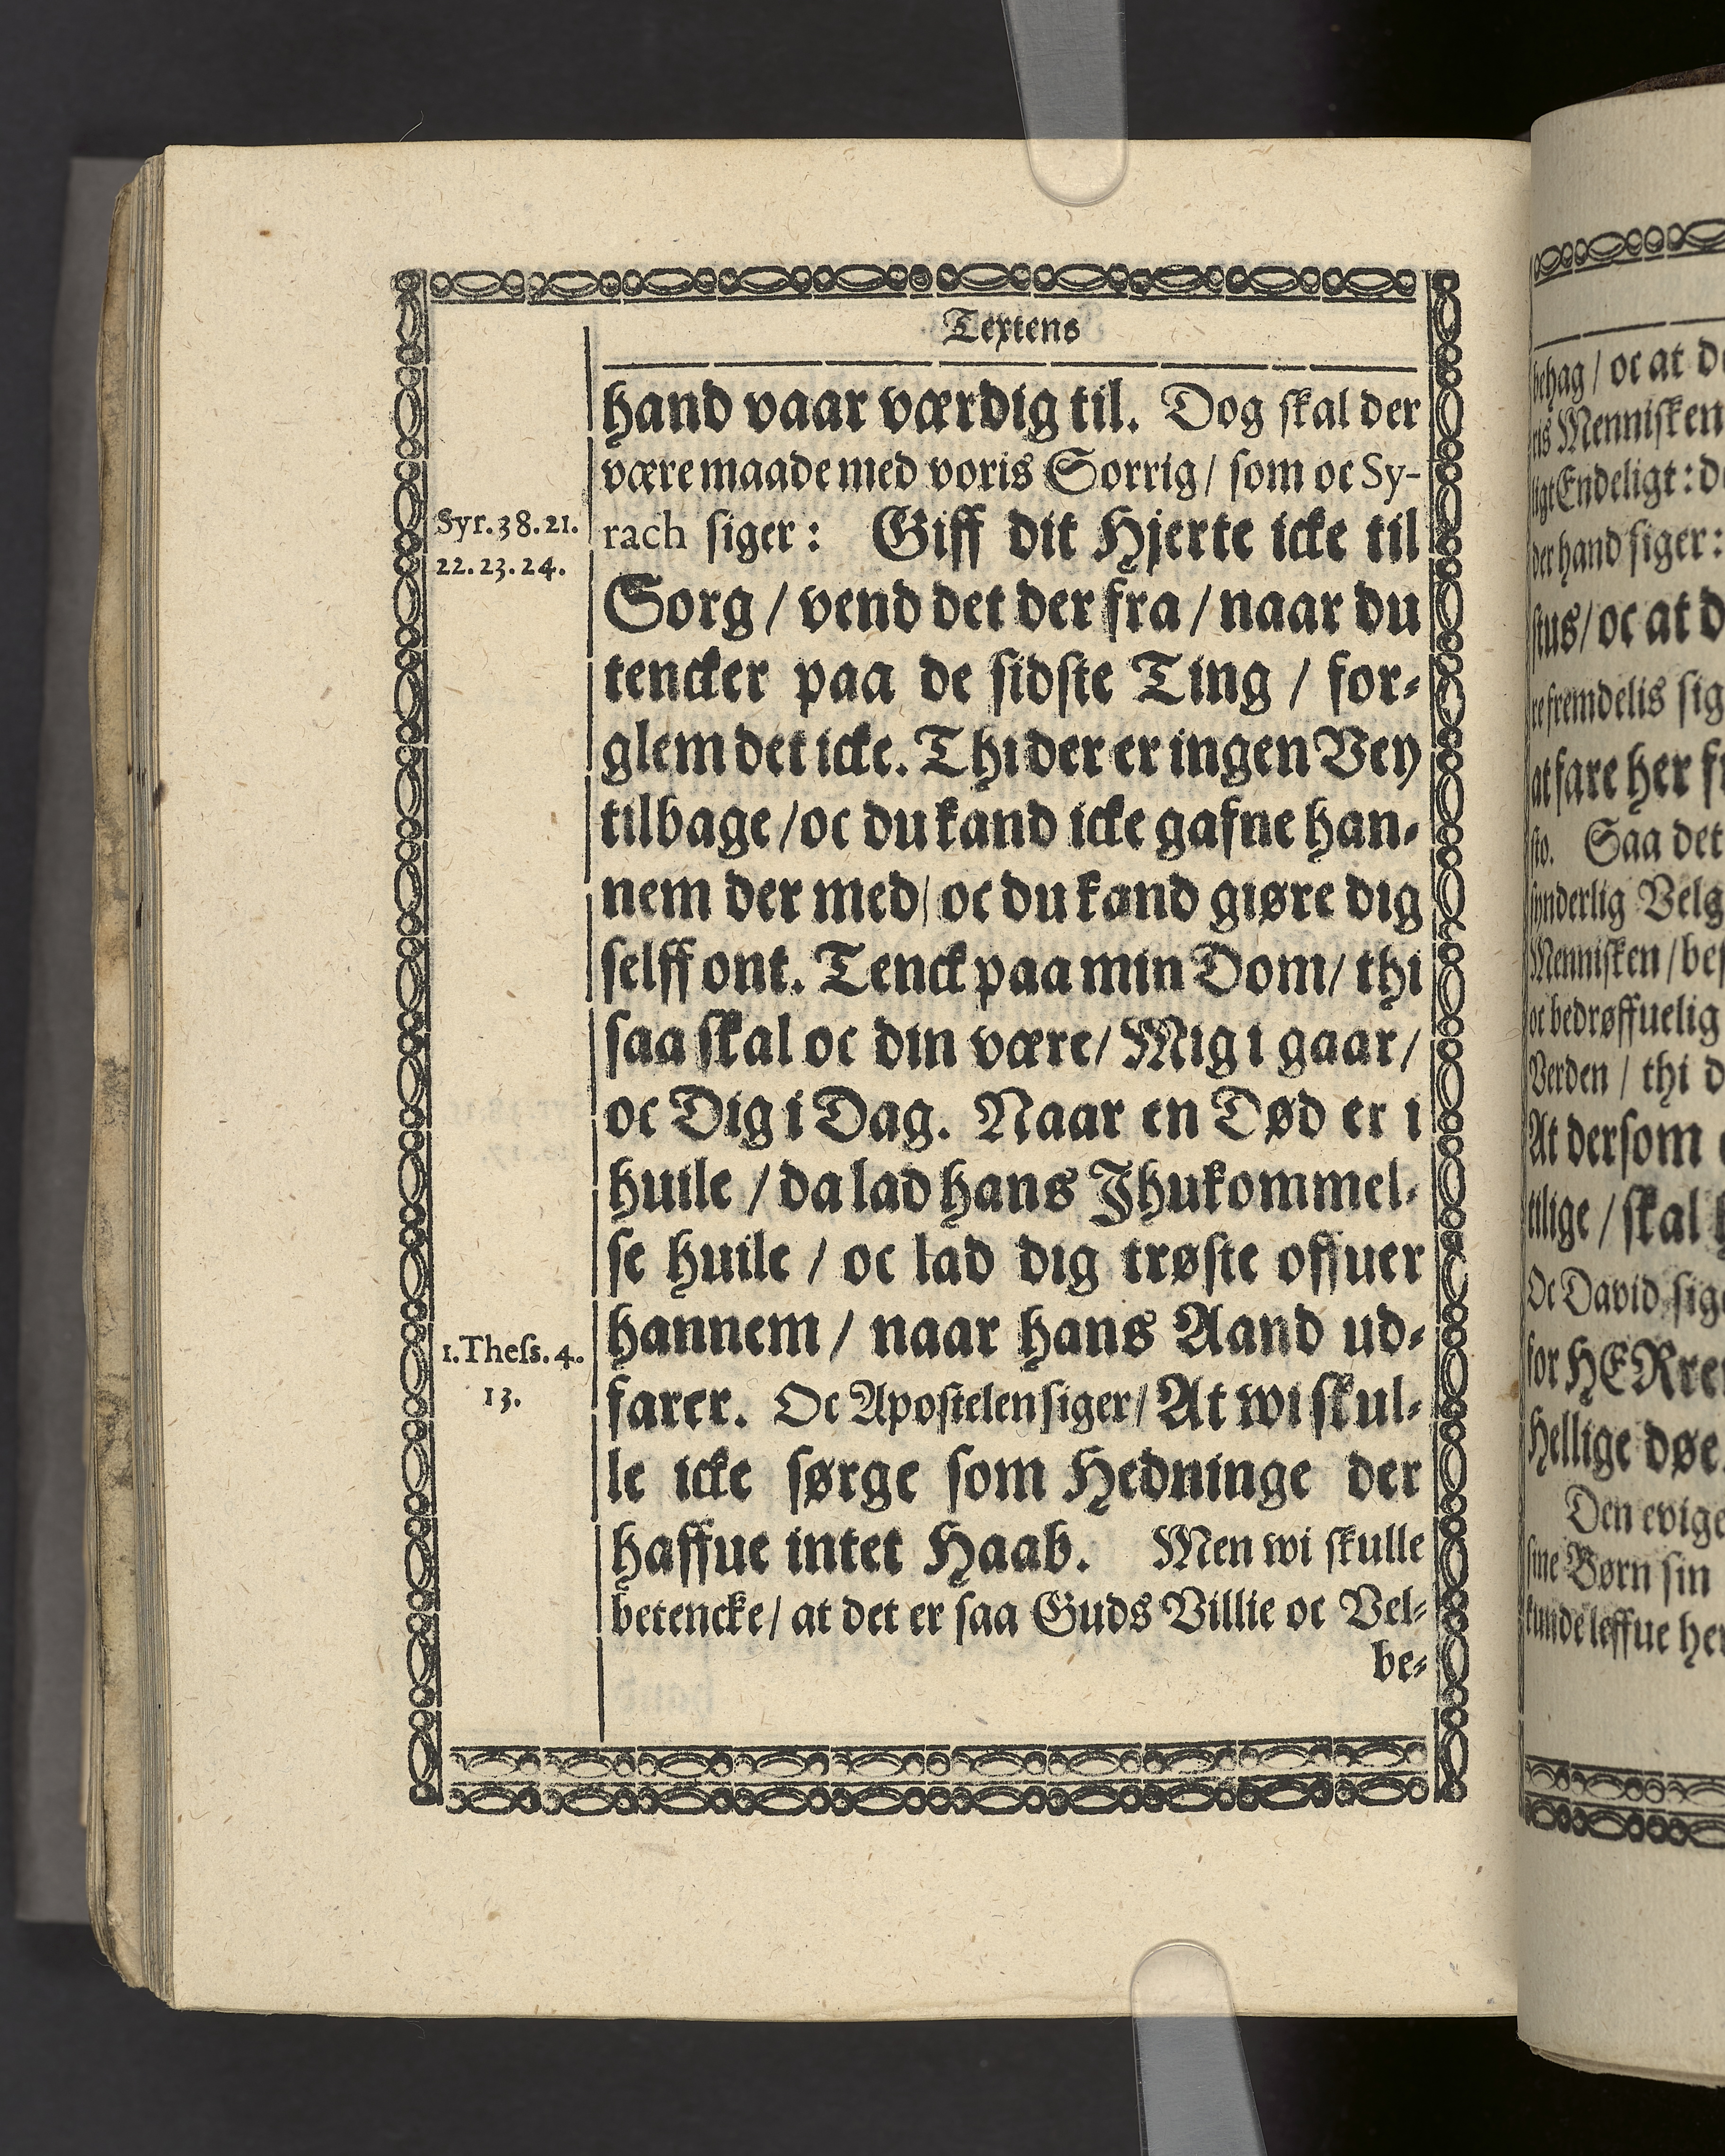 Textens
hand vaar værdig til. Dog skal der
være maade med voris Sorrig / som oc Sy-
Syr. 38. 21.
22. 23. 24.
rach siger: Giff dit Hjerte icke til
Sorg / vend det der fra / naar du
tencker paa de sidste Ting / for-
glem det icke. Thi der er ingen Vey
tilbage / oc du kand icke gafne han-
nem der med / oc du kand giøre dig
selff ont. Tenck paa min Dom / thi
saa skal oc din være / Mig i gaar /
oc Dig i Dag. Naar en Død er i
huile / da lad hans Jhukommel-
se huile / oc lad dig trøste offuer
hannem / naar hans Aand ud-
1. Thess. 4.
13.
farer. Oc Apostelen siger / At wi skul-
le icke sørge som Hedninge der
haffue intet Haab. Men wi skulle
betencke / at det er saa Guds Villie oc Vel-
be-
behag / oc at
Mennisken
Endeligt:
der hand siger:
/ oc at
fremdelis
at fare her
sto. Saa det
synderlig
Mennisken /
oc bedrøffuelig
Verden / thi
At dersom
/ skal
Oc David
for HERren
Hellige døe.
Den evige
sine Børn sin
kunde leffue